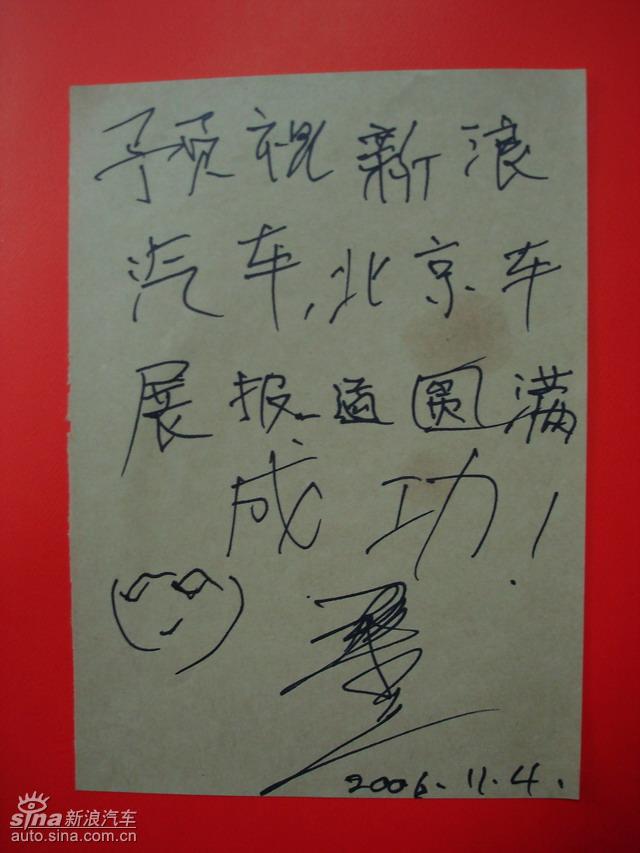 预祝新浪
汽车,北京车
展报道圆满
成功!
2006.11.4.
sina新浪汽车
auto.sina.com.cn